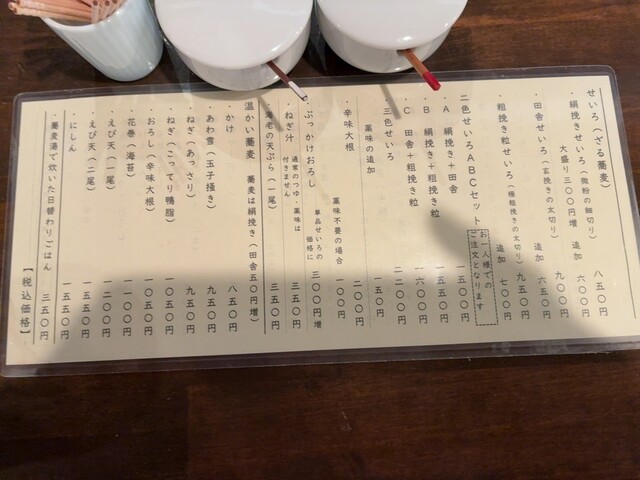 せいろ（ざる蕎麦）
・絹挽きせいろ（微粉の細切り） 八五〇円
大盛り三〇〇円増 追加 六〇〇円
・田舎せいろ（玄挽きの太切り） 九〇〇円
追加 六五〇円
・粗挽き粒せいろ（極粗挽きの太切り） 九五〇円
追加 七〇〇円
二色せいろABCセット
お一人様での
ご注文となります
・A 絹挽き＋田舎 一五〇〇円
・B 絹挽き＋粗挽き粒 一五五〇円
・C 田舎＋粗挽き粒 一六〇〇円
・三色せいろ 二二〇〇円
薬味の追加 一五〇円
・辛味大根 二〇〇円
薬味不要の場合 一〇〇円
・ぶっかけおろし 単品せいろの価格に 三〇〇円増
・ねぎ汁 通常のつゆ・薬味は付きません 三五〇円
・海老の天ぷら（一尾） 三五〇円
温かい蕎麦 蕎麦は絹挽き（田舎五〇円増）
・かけ 八五〇円
・あわ雪（玉子掻き） 九五〇円
・ねぎ（あっさり） 九五〇円
・ねぎ（こってり鴨脂） 一〇五〇円
・おろし（辛味大根） 一〇五〇円
・花巻（海苔） 一一〇〇円
・えび天（一尾） 一二〇〇円
・えび天（二尾） 一五五〇円
・にしん 一五五〇円
・蕎麦湯で炊いた日替わりごはん 三五〇円
【税込価格】